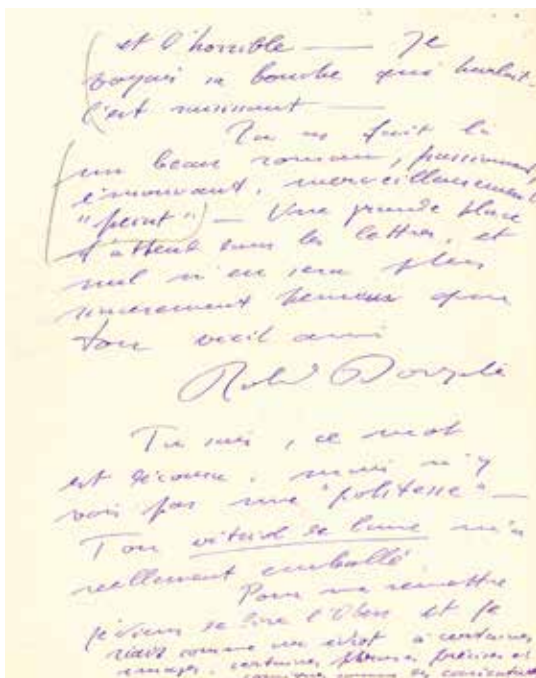 et l'horrible — Je
voyais sa bouche qui hurlait.
C'est saisissant —
Tu as fait là
un beau roman, passionnant,
émouvant, merveilleusement
"peint" — Une grande place
t'attend dans les lettres, et
nul n'en sera plus
sincèrement heureux que
ton vieil ami
Tu sais, ce mot
est décousu, mais n'y
vois pas une "politesse" —
Ton vitriol de lune m'a
réellement emballé
Pour me remettre
je viens de lire l'Obus et je
riais comme un idiot à certaines
images, certaines phrases précises et
comme